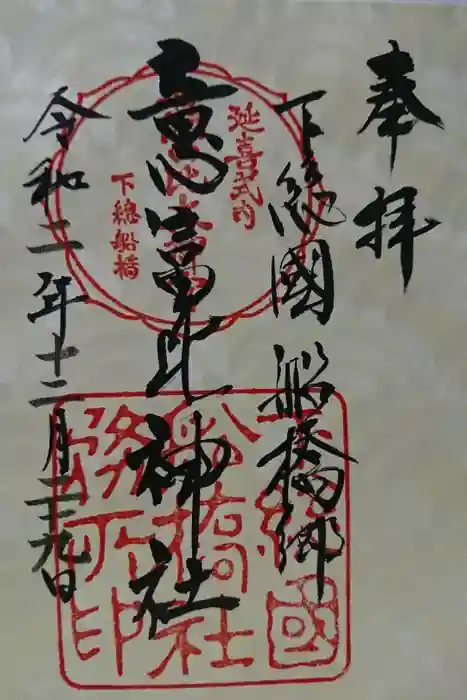 奉拝
下総國船橋郷
意富比神社
令和二年十二月二十九日
延喜式内
意富比神社
下總船橋
総國
船橋社
務所印